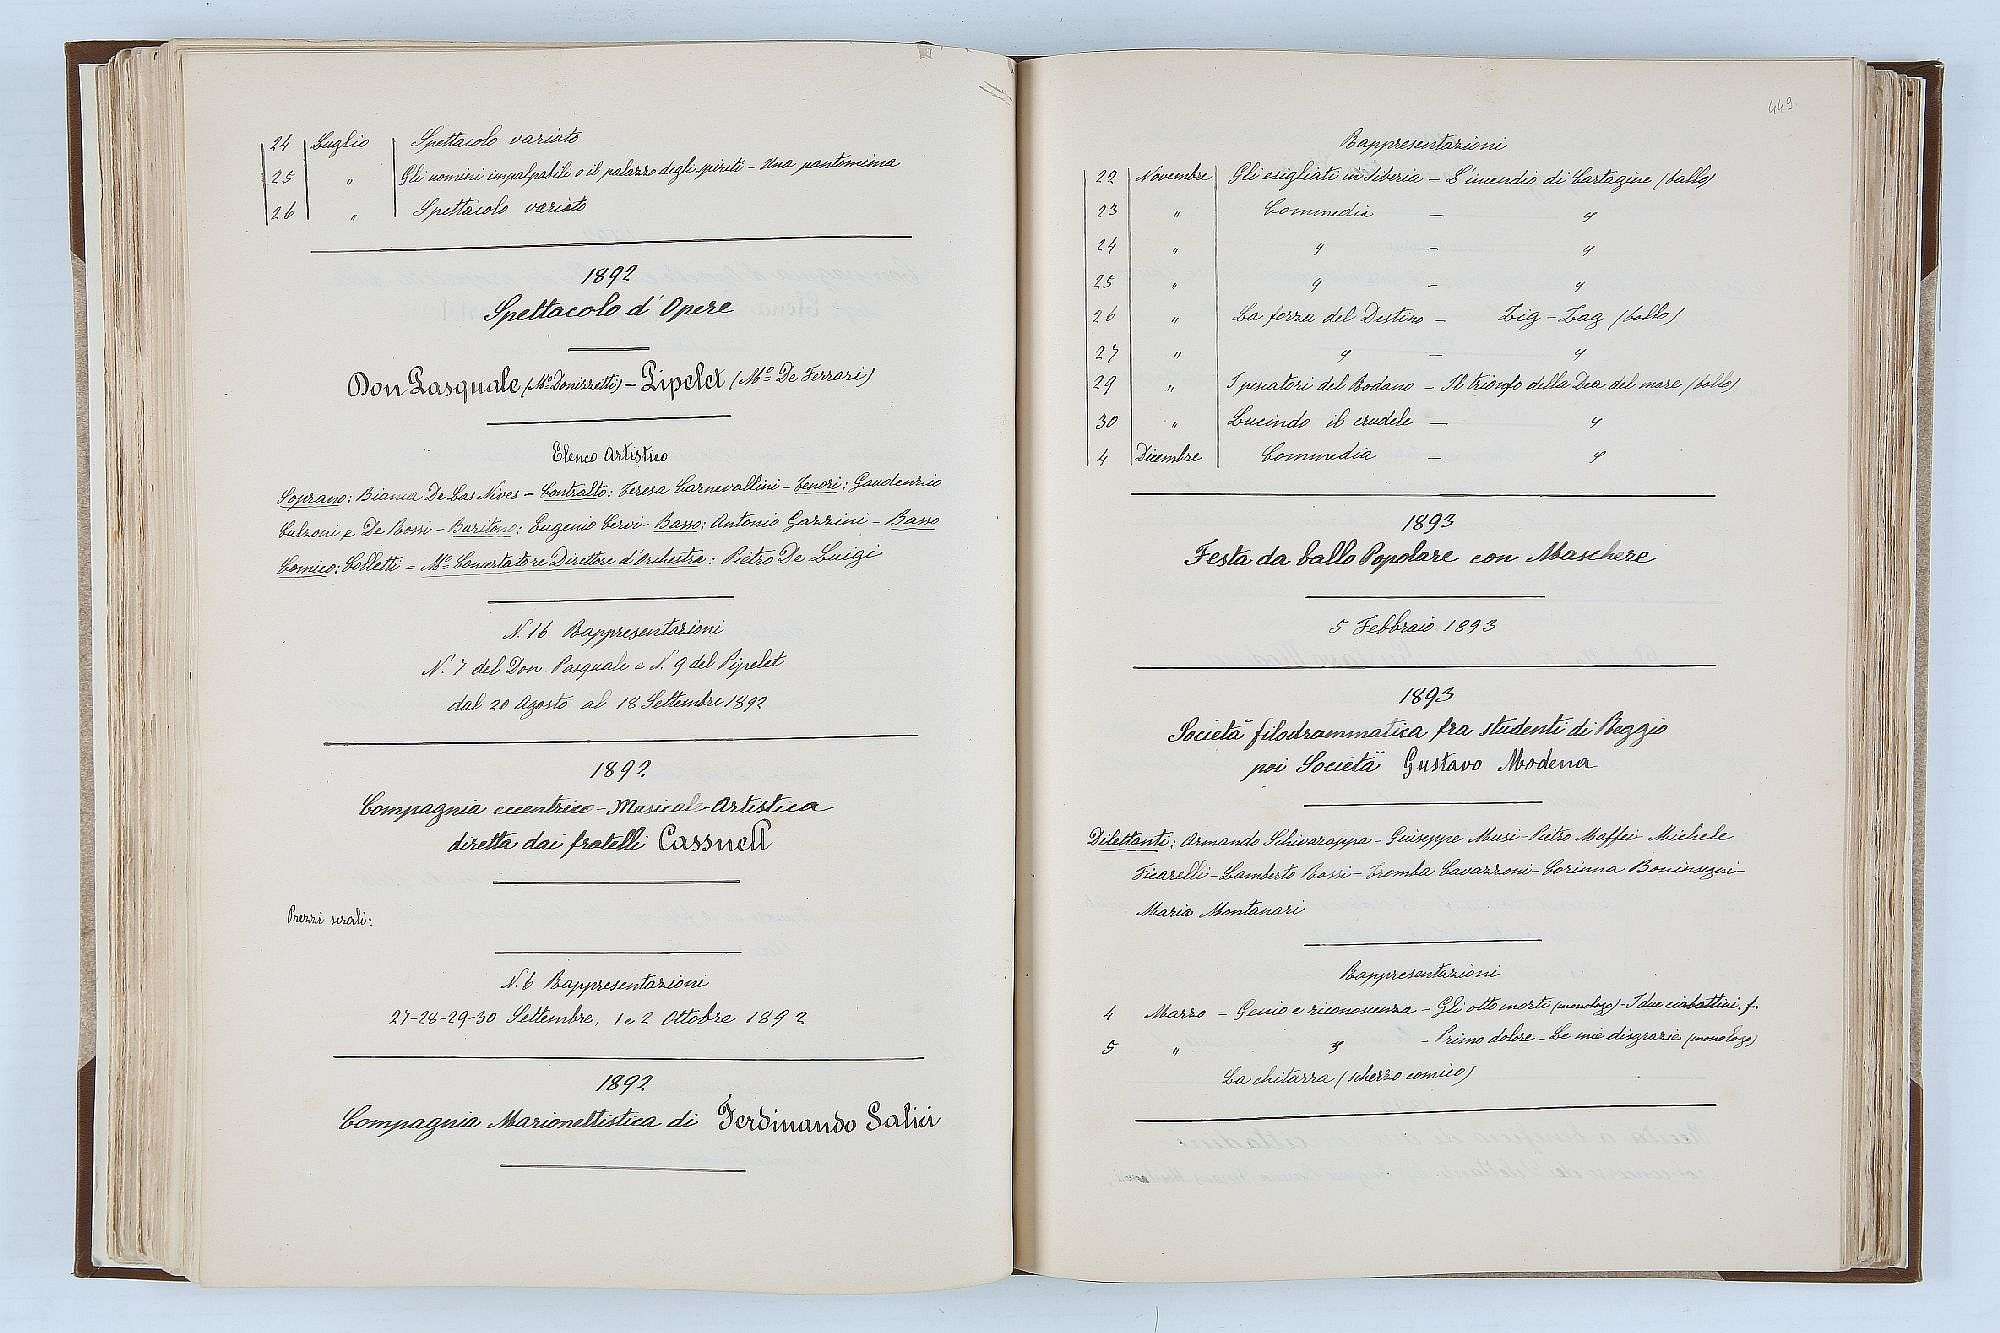 24 Luglio Spettacolo variato
25 " Gli uomini impalpabili o il palazzo degli spiriti - Una pantomima
26 " Spettacolo variato
1892
Spettacolo d'Opere
Don Pasquale (Mº Donizzetti) - Pipelet (Mº De Ferrari)
Elenco Artistico
Soprano: Bianca De Las Nives - Contralto: Teresa Carnevallini - Tenori: Gaudenzio
Calzoni e De Rossi - Baritono: Eugenio Cervi - Basso: Antonio Gazzini - Basso
Comico: Colletti = Mº Concertatore Direttore d'Orchestra: Pietro De Luigi
N. 16 Rappresentazioni
N. 7 del Don Pasquale e N. 9 del Pipelet
dal 20 Agosto al 18 Settembre 1892
1892
Compagnia eccentrico-Musicale-Artistica
diretta dai fratelli Cassnell
Prezzi serali:
N. 6 Rappresentazioni
27-28-29-30 Settembre, 1 e 2 Ottobre 1892
1892
Compagnia Marionettistica di Ferdinando Salici
449
Rappresentazioni
22 Novembre Gli esigliati in Siberia - L'incendio di Cartagine (ballo)
23 " Commedia - "
24 " " - "
25 " " - "
26 " La forza del Destino - Zig-Zag (ballo)
27 " " - "
29 " I pescatori del Rodano - Il trionfo della Dea del mare (ballo)
30 " Lucindo il crudele - "
4 Dicembre Commedia - "
1893
Festa da ballo Popolare con Maschere
5 Febbraio 1893
1893
Società filodrammatica fra studenti di Reggio
poi Società Gustavo Modena
Dilettanti: Armando Schivazappa - Guiseppe Musi - Pietro Maffei Michele
Ficarelli - Lamberto Rossi - Tromba Cavazzoni - Corinna Boninsegni -
Maria Montanari
Rappresentazioni
4 Marzo - Genio e riconoscenza - Gli otto morti (monologo) - I due ciabattini, f.
5 " " - Primo dolore - Le mie disgrazie (monologo)
La chitarra (scherzo comico)